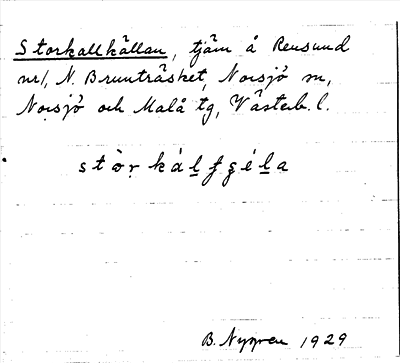 Storkallkällan, tjärn å Rensund
nr 1, N. Brunträsket, Norsjö sn,
Norsjö och Malå tg, Västerb. l.
B. Nygren 1929